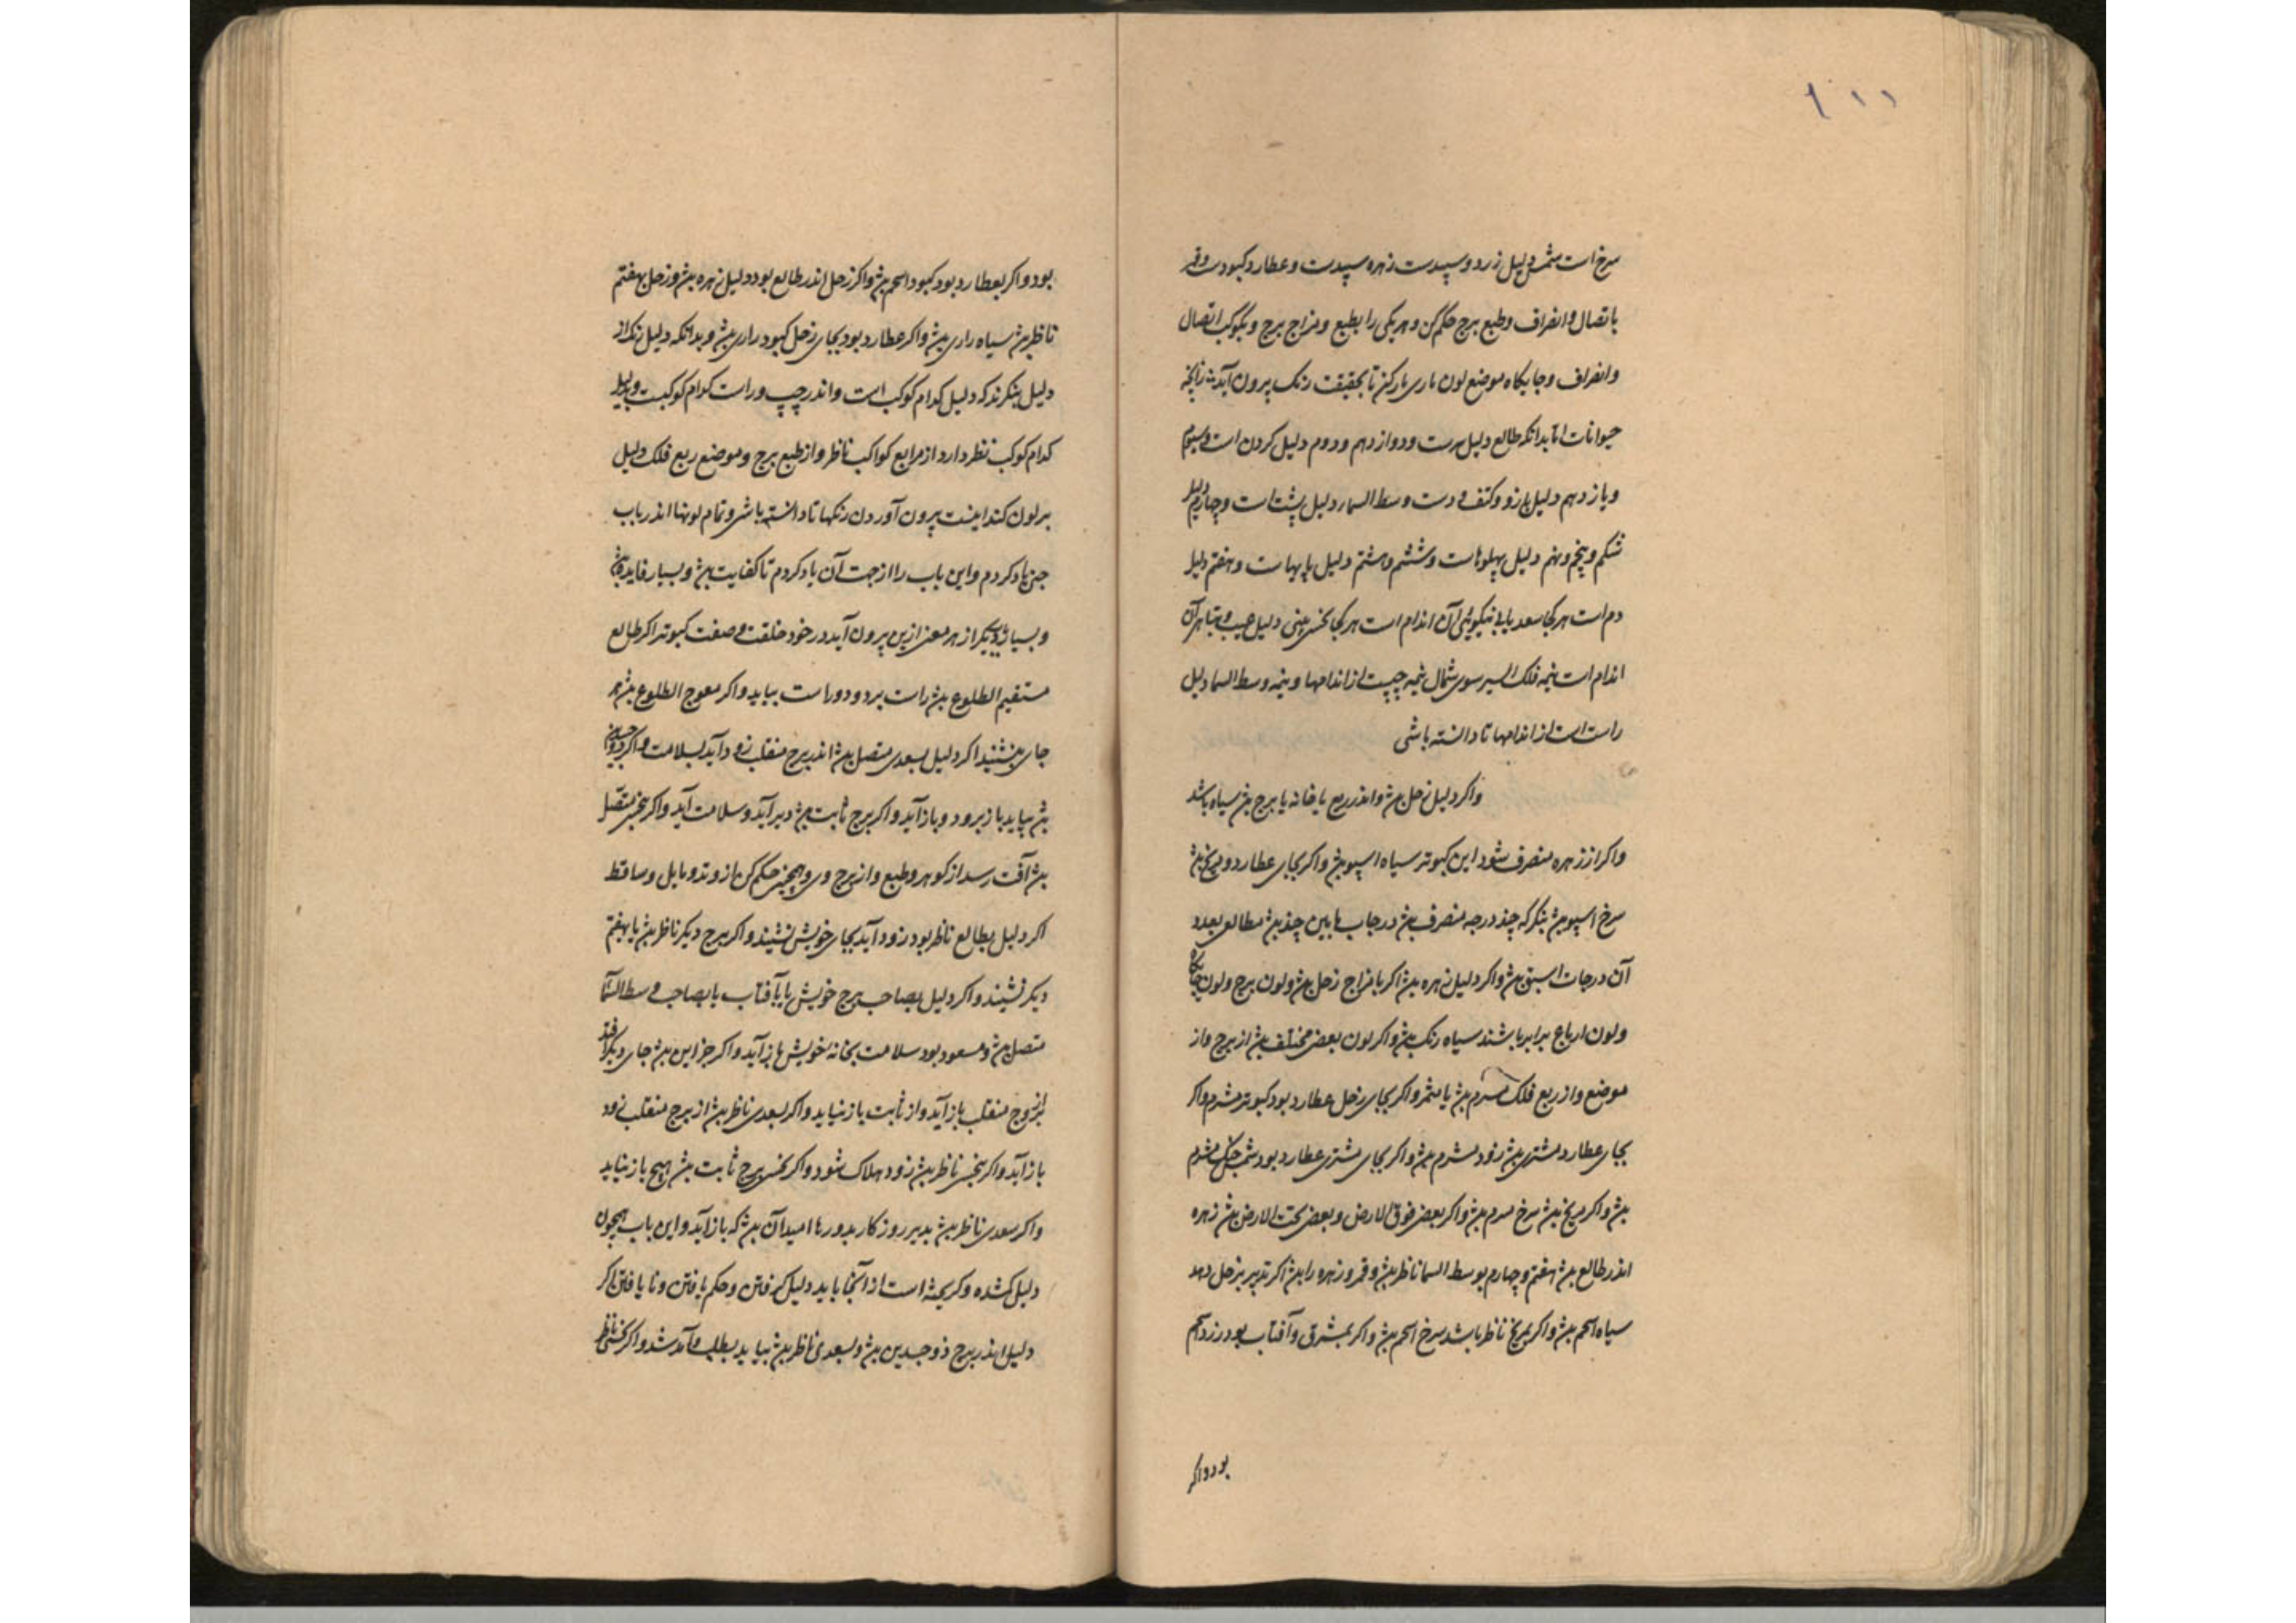 سرخ است شمس دلیل زرد و سپیدست زهره سپیدست و عطارد کبودست و قمر
باتصال و انصراف و طبع برج حکم کن و هر یکی را بطبع و مزاج برج و بکوکب اتصال
و انصراف و جایکاه موضع لون یاری یار کن تا بحقیقت رنک بیرون آید
حیوانات اما بدانکه طالع دلیل سرست و دوازدهم و دوم دلیل کردن است و سیوم
و یازدهم دلیل بازو و کتف و دست وسط السما دلیل پشت است و چهارم دلیل
شکم و پنجم و نهم دلیل پهلوهاست و ششم و هشتم دلیل پایهاست و هفتم دلیل
دم است هر کجا سعد یابی نیکویی آن اندام است هر کجا نحس بینی دلیل عیب و تباهی آن
اندام است نیمه فلک السیر سوی شمال نیمه چپ است از اندامها و نیمه وسط السما دلیل
راست است از اندامها تا دانسته باشی
واکر دلیل زحل بش و اندر ربع یا خانه یا برج بش سیاه باشد
واکر از زهره منصرف شود این کبوتر سیاه اسپو بش واکر بجای عطارد و مریخ بش
سرخ اسپو بش بنکر که چند درجه منصرف بش درجات مابین چند بش مطالع بعدد
آن درجات بش واکر دلیل زهره بش اکر با مزاج زحل بش ولون برج ولون جایکاه
ولون ارباع برابر باشند سیاه رنک بش واکر لون بعضی مختلف بش از برج واز
موضع واز ربع فلک بش یا واکر بجای زحل عطارد بود کبوتر واکر
بجای عطارد مشتری بش زود بش واکر بجای مشتری عطارد بود
بش واکر مریخ بش سرخ بش واکر بعضی فوق الارض و بعضی تحت الارض بش زهره
اندر طالع بش هفتم و چهارم بوسط السما ناظر بش و قمر و زهره را بش اکر تدبیر بزحل دهد
سیاه اسحم بش واکر بمریخ ناظر باشد سرخ اسحم بش واکر بمشرق و آفتاب بود زرد اسحم
بود واکر
بود واکر بعطارد بود کبود اسحم بش واکر زحل اندر طالع بود دلیل زهره بش و زحل بهفتم
ناظر بش سیاه راری بش واکر عطارد بود بجای زحل کبود راری بش و بدانکه دلیل رنک از
دلیل بنکرند که دلیل کدام کوکب است و اندر چپ و راست کدام کوکبست و دلیل
کدام کوکب نظر دارد از مرابع کواکب ناظر و از طبع برج و موضع ربع فلک دلیل
بر لون کند اینست بیرون آوردن رنکها تا دانسته باشی و تمام لونها اندر باب
جنی یاد کردم و این باب را از جهت آن یاد کردم تا کفایت بش و بسیار فایده بش
و بسیار دیکر از هر معنی ازین بیرون آید در خود خلقت و صفت کبوتر اکر طالع
مستقیم الطلوع بش راست برد و دور است بیاید واکر معوج الطلوع بش بهر
جای بنشیند اکر دلیل بسعدی متصل بش اندر برج منقلب زود آید بسلامت واکر ذو جسدین
بش بیاید باز برود و باز آید واکر برج ثابت بش دیر آید و سلامت آید واکر بنحس متصل
بش آفت رسد از کوهر و طبع و از برج وی و همچنین حکم کن از وتد و مایل و ساقط
اکر دلیل بطالع ناظر بود زود آید بجای خویش نشیند واکر برج دیکر ناظر بش یا بهفتم
دیکر نشیند واکر دلیل بصاحب برج خویش یا بآفتاب یا بصاحب وسط السما
متصل بش و مسعود بود سلامت بخانه خویش باز آید واکر جز این بش جای دیکر افتد
از بروج منقلب باز آید و از ثابت باز نیاید واکر بسعدی ناظر بش از برج منقلب زود
باز آید واکر بنحس ناظر بش زود هلاک شود واکر نحس ببرج ثابت بش هیچ باز نیاید
واکر سعدی ناظر بش بدیر روزکار بدورها امید آن بش که باز آید و این باب همچون
دلیل کمشده و کریخته است از آنجا باید دلیل کرفتن و حکم یافتن و نا یافتن اکر
دلیل اندر برج ذو جسدین بش و بسعدی ناظر بش بیاید بطلب و آمد شد واکر نحس ناظر